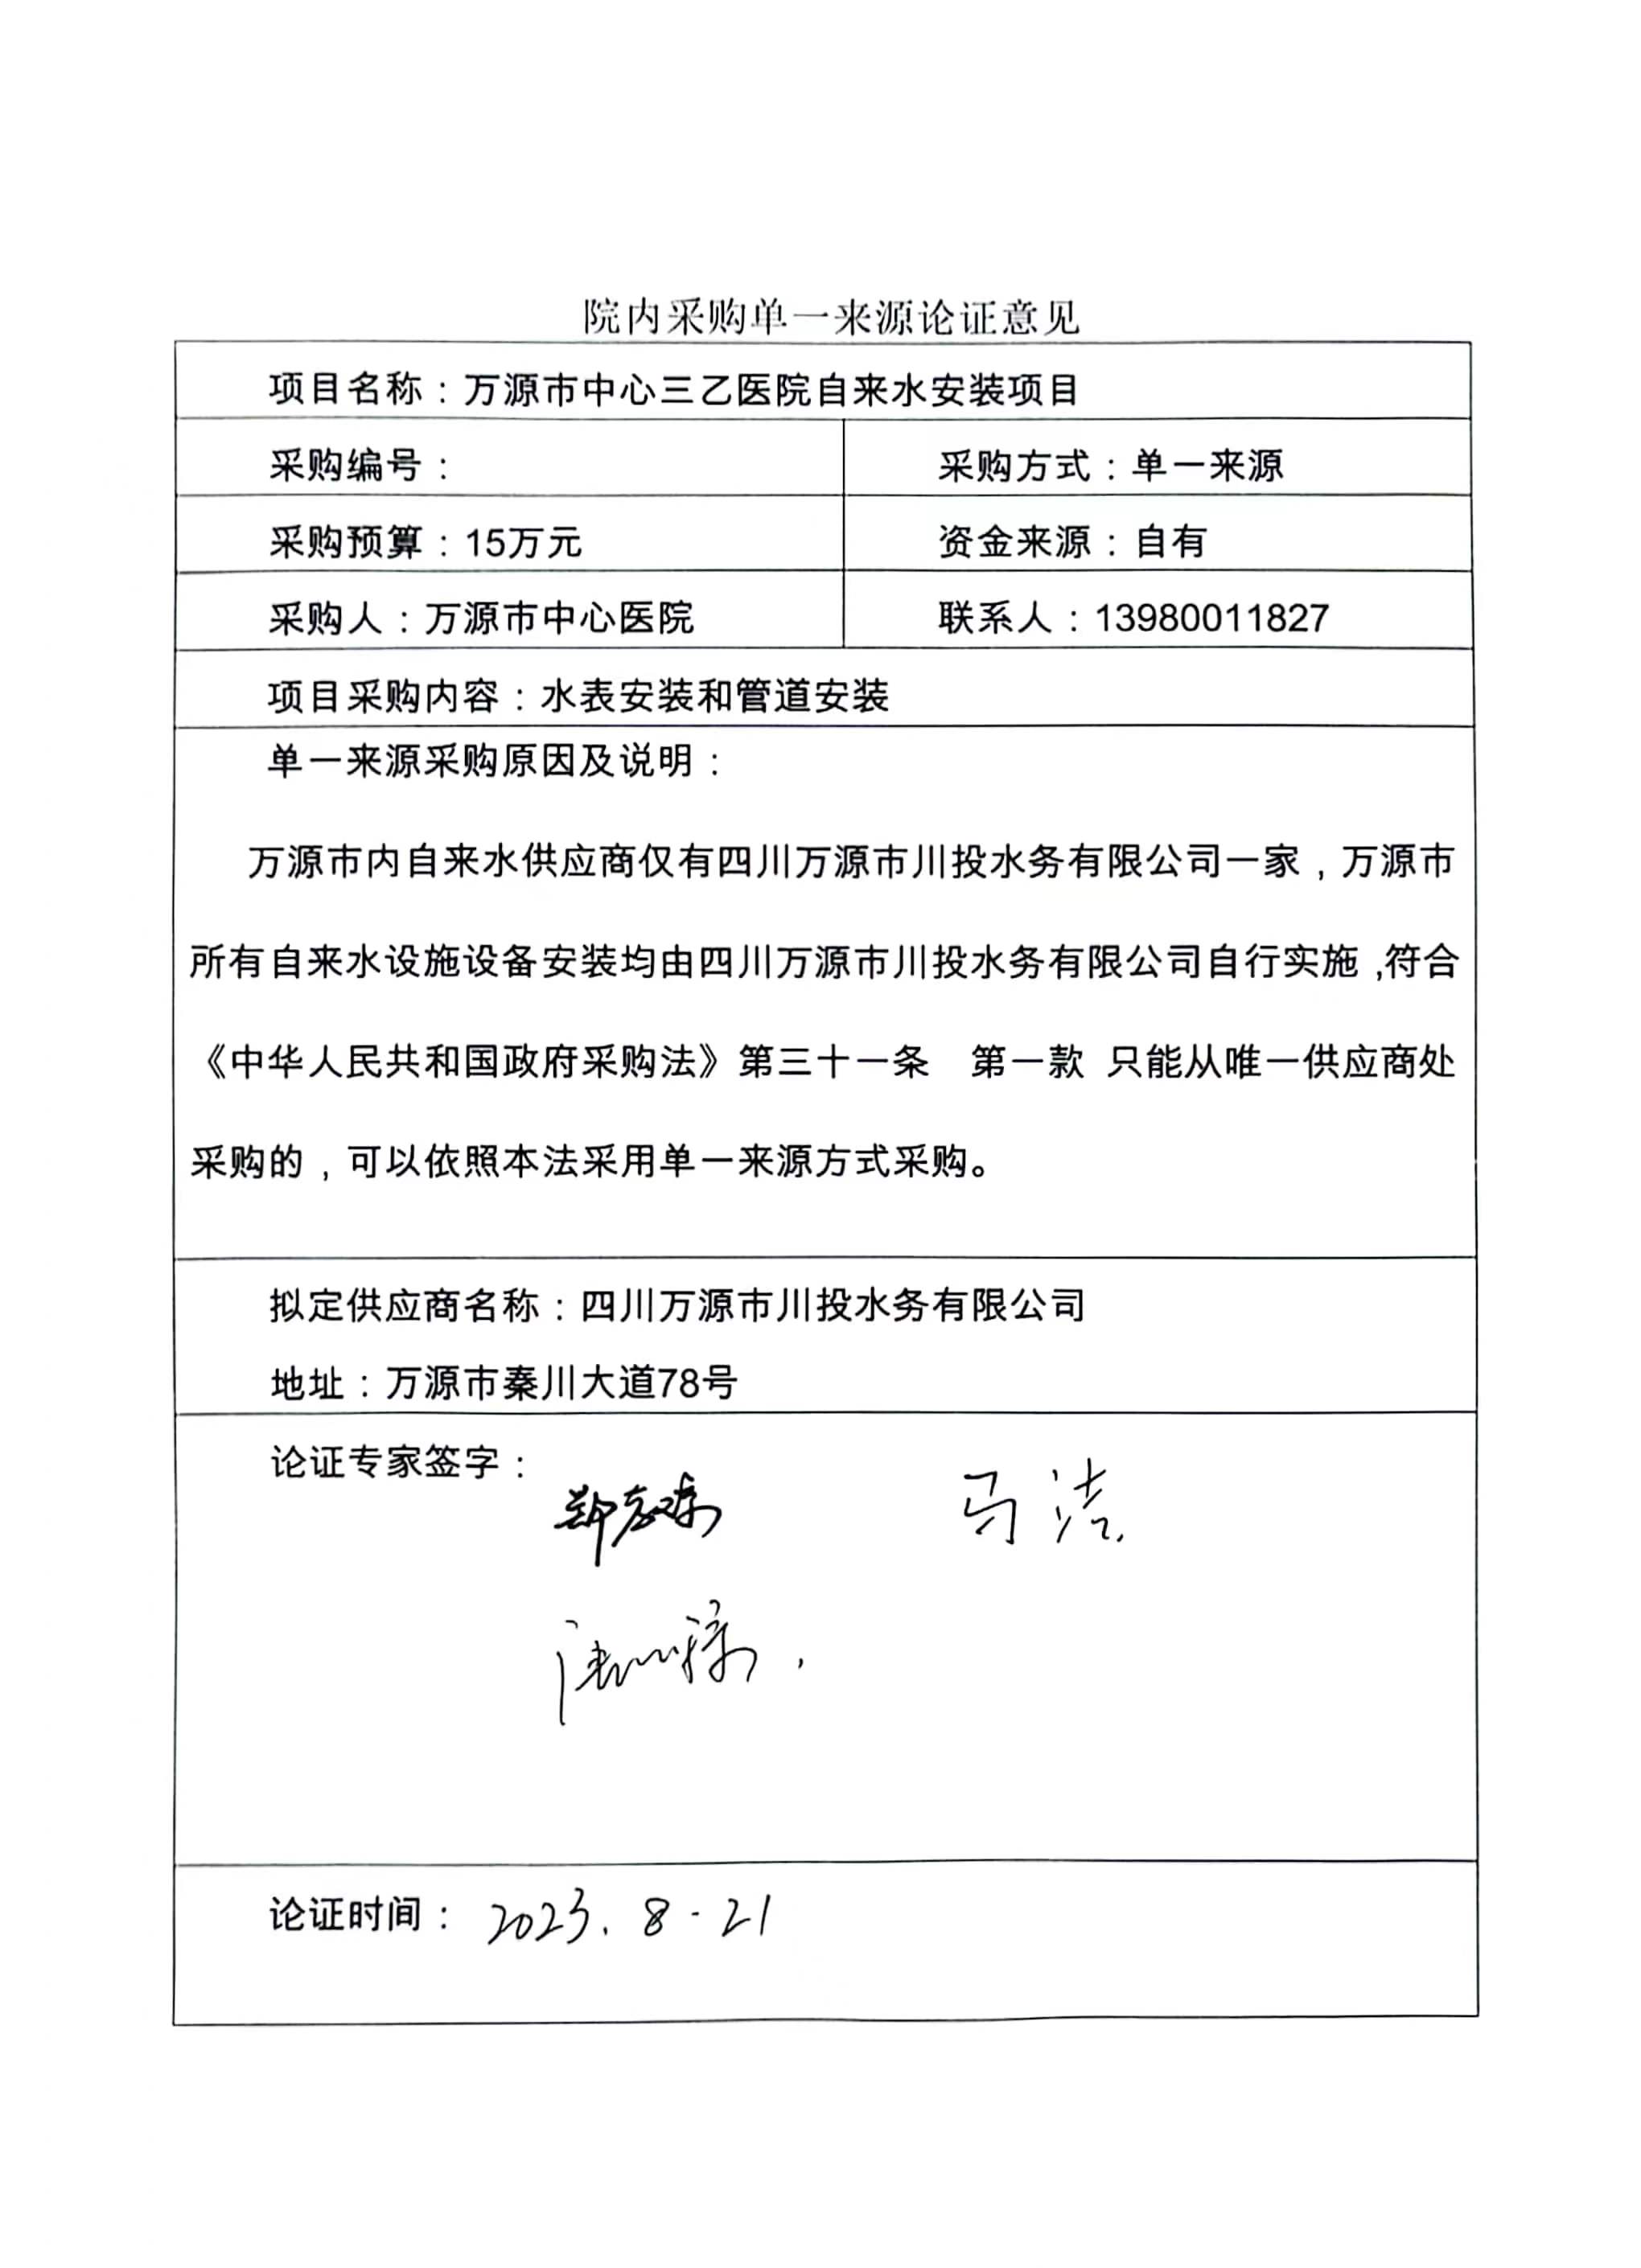 院内采购单一来源论证意见
项目名称：万源市中心三乙医院自来水安装项目
采购编号：
采购方式：单一来源
采购预算：15万元
资金来源：自有
采购人：万源市中心医院
联系人：13980011827
项目采购内容：水表安装和管道安装
单一来源采购原因及说明：
万源市内自来水供应商仅有四川万源市川投水务有限公司一家，万源市
所有自来水设施设备安装均由四川万源市川投水务有限公司自行实施,符合
《中华人民共和国政府采购法》第三十一条 第一款 只能从唯一供应商处
采购的，可以依照本法采用单一来源方式采购。
拟定供应商名称：四川万源市川投水务有限公司
地址：万源市秦川大道78号
论证专家签字：
马洁
论证时间：2023.8-21